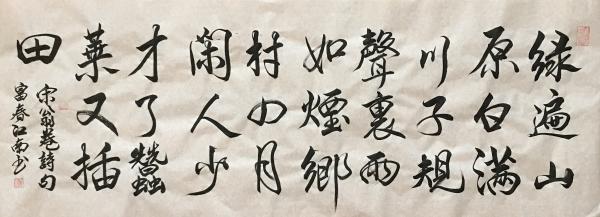 緑遍山
原白滿
川子規
聲裏雨
如煙鄉
村四月
閑人少
才了蠶
桑又插
田
宋翁卷詩句
富春江南书